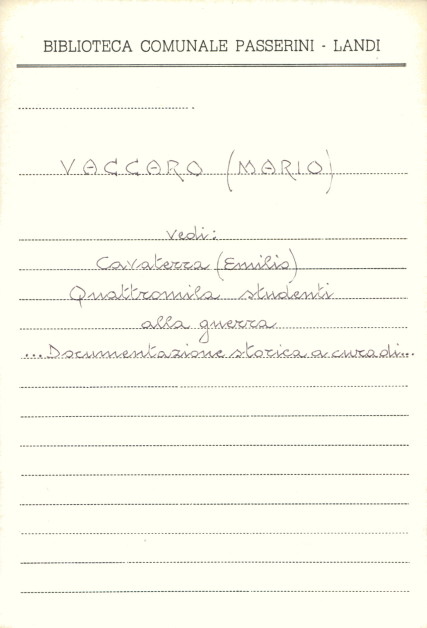 BIBLIOTECA COMUNALE PASSERINI - LANDI
VACCARO (MARIO)
vedi:
Cavaterra (Emilio)
Quattromila studenti
alla guerra
...Documentazione storica a cura di...